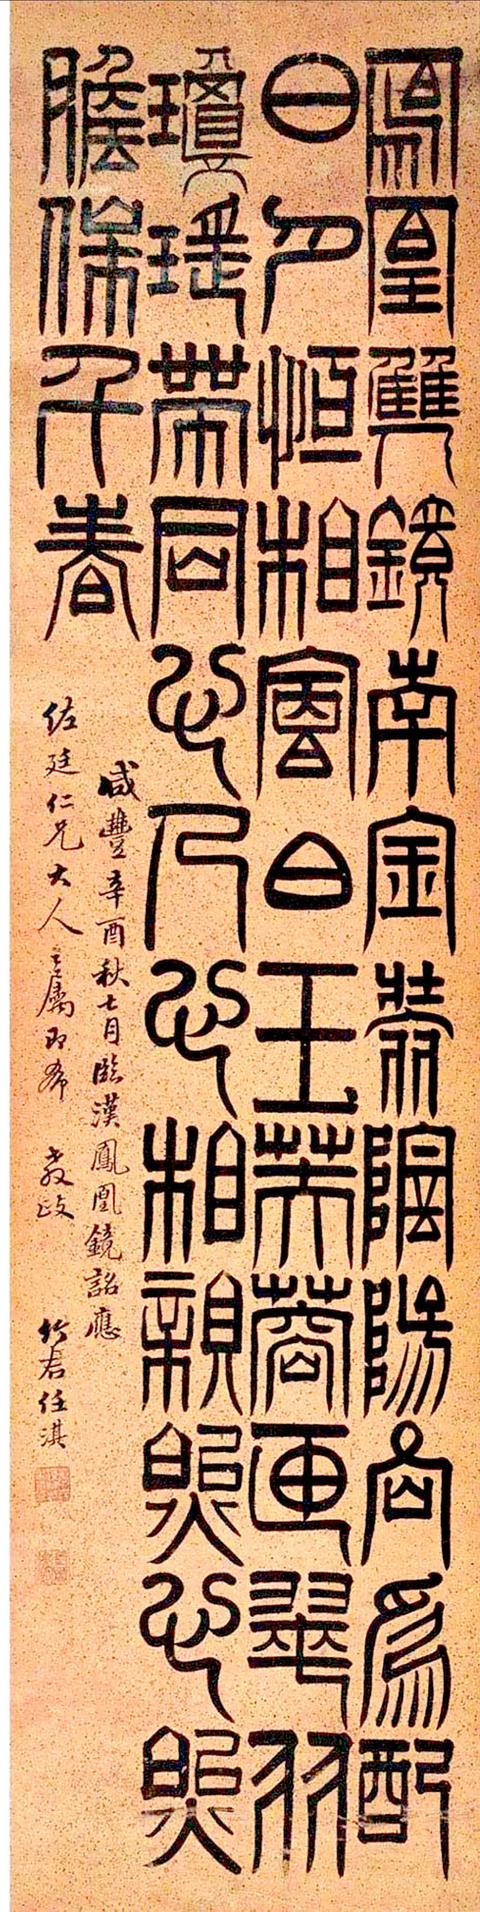 鳳凰雙鏡南金裝陰陽各為配
日月恒相會白玉芙蓉匣翠羽
瓊瑤帶同心人心相親照心照
膽保千春
咸豐辛酉秋七月臨漢鳳凰鏡詺應
佐廷仁兄大人之屬即希 教政 竹君任淇